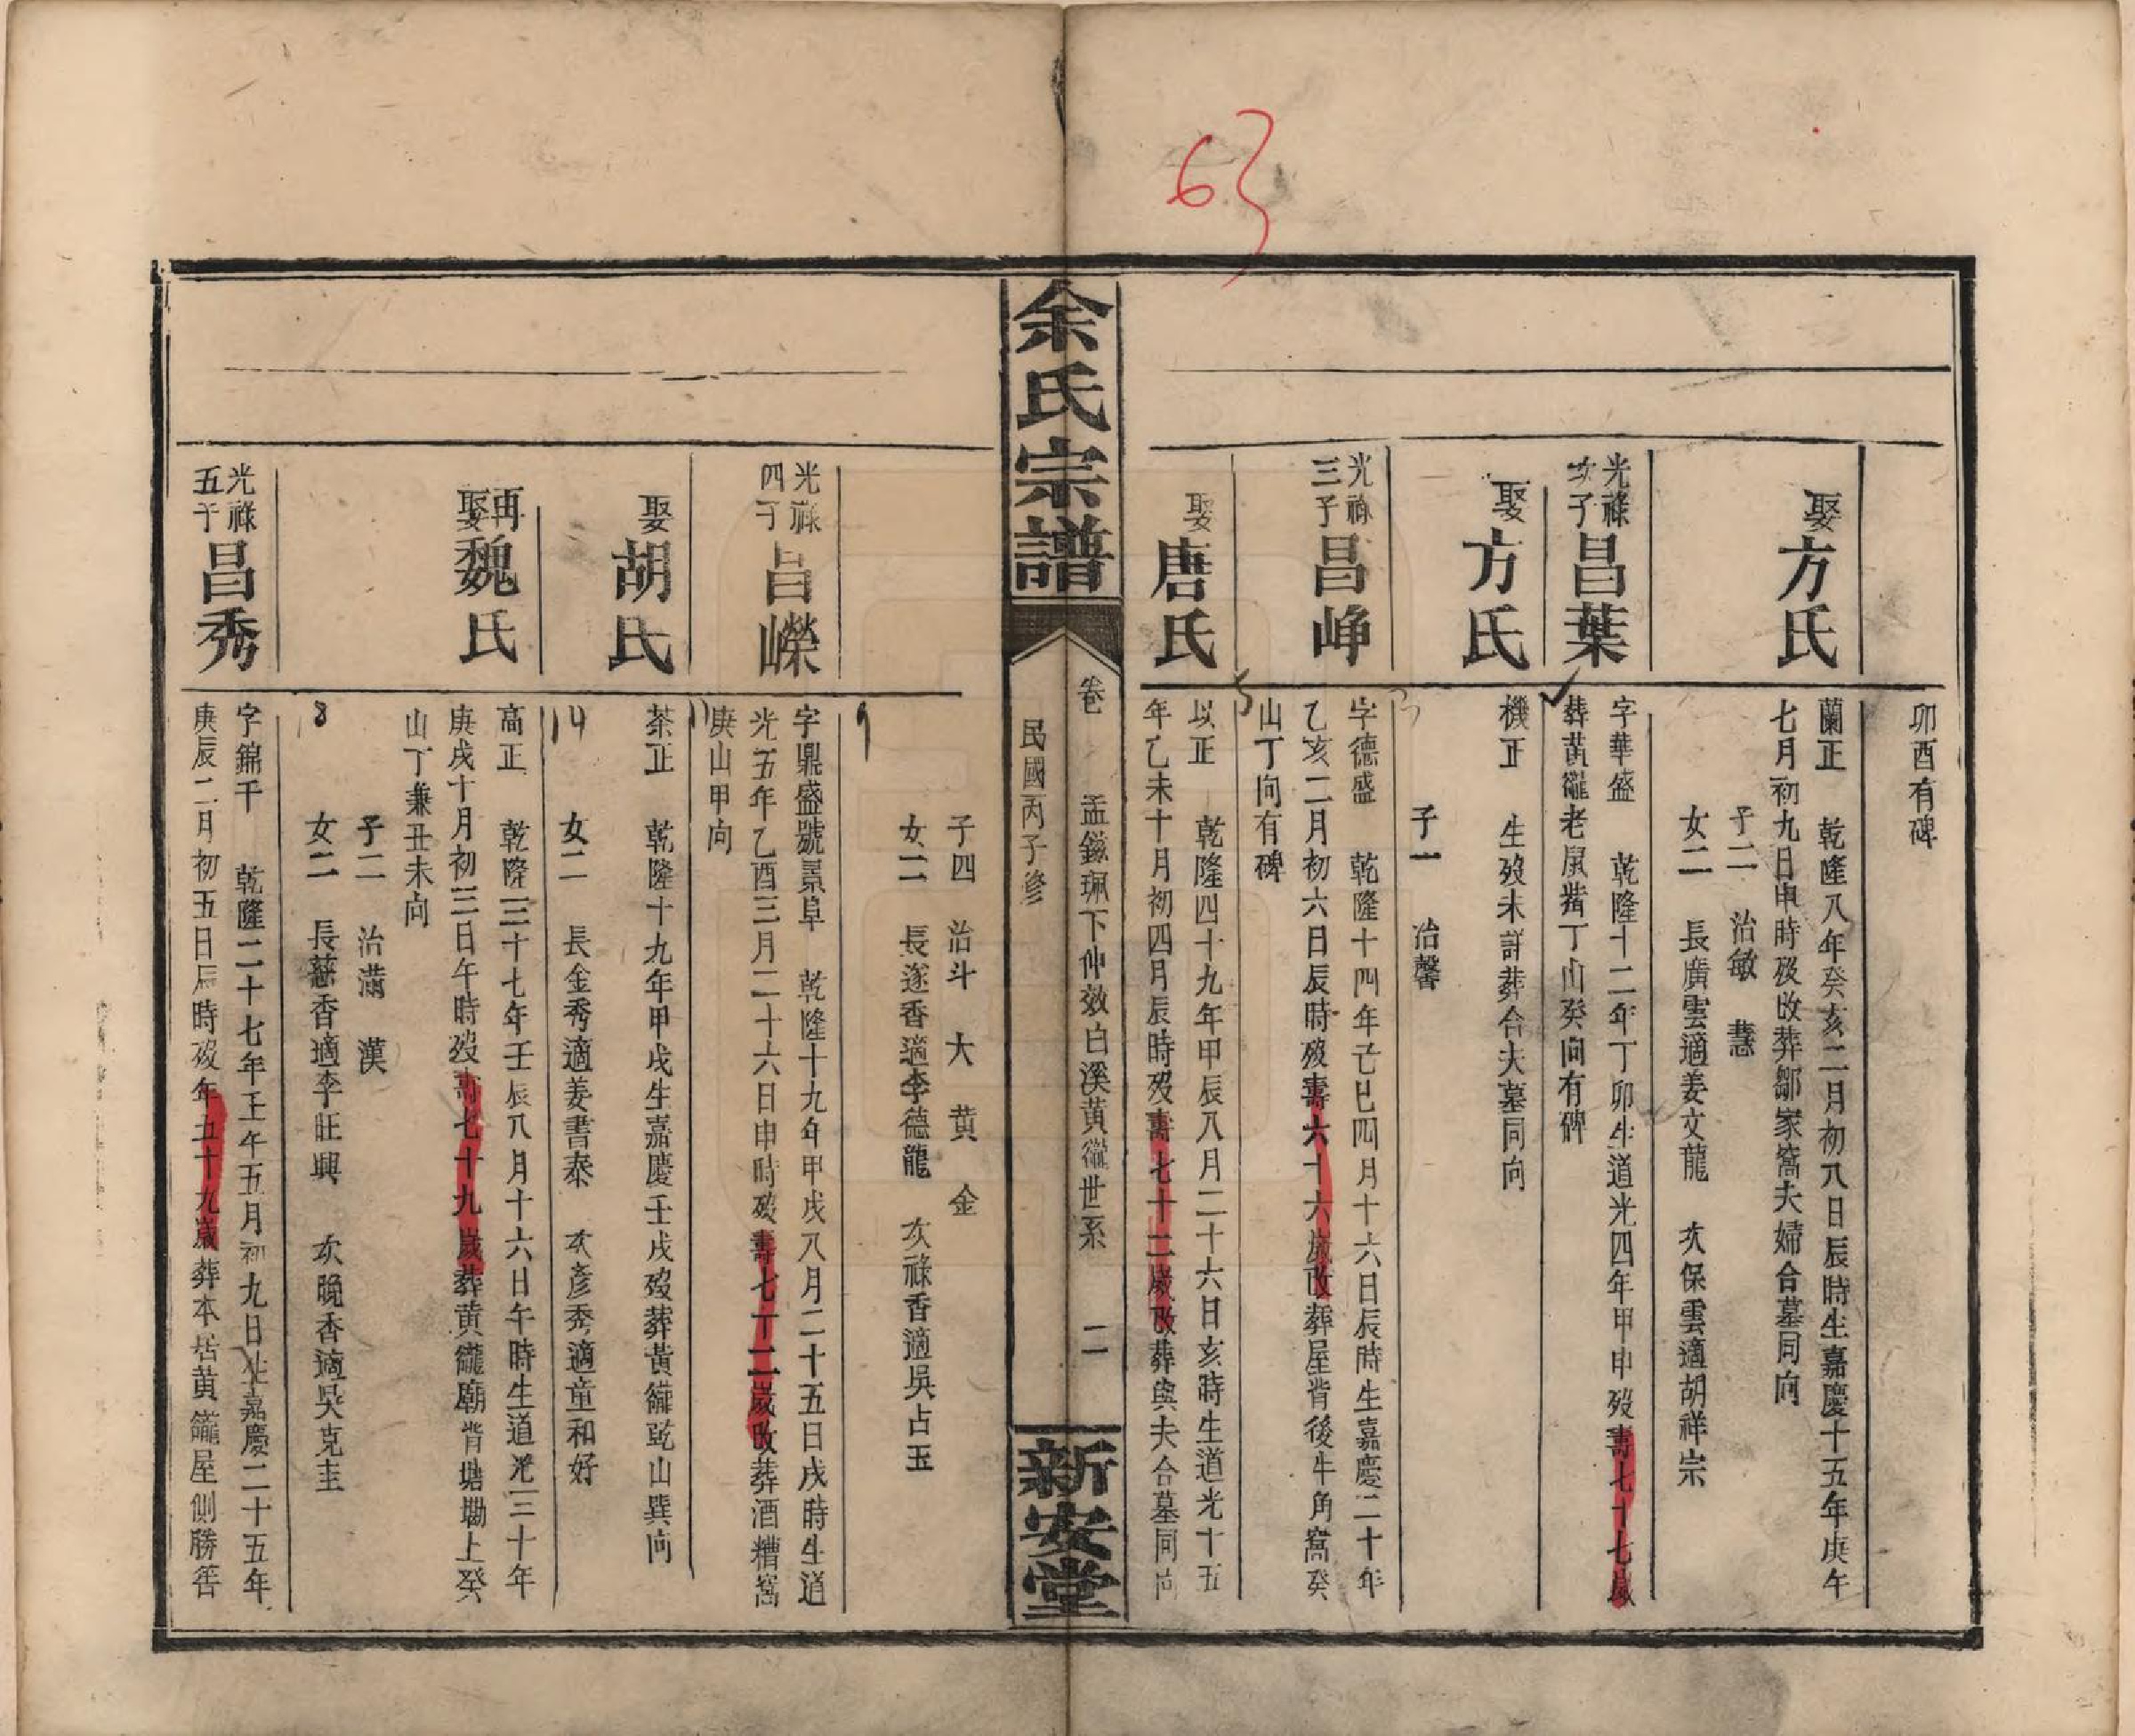 63
卯酉有碑
娶方氏
蘭正 乾隆八年癸亥二月初八日辰時生嘉慶十五年庚午
七月初九日申時歿改葬鄒家窩夫婦合墓同向
子二 治敏 慧
女二 長廣雲適姜文龍 次保雲適胡祥宗
光祿
次子
昌葉
字華盛 乾隆十二年丁卯生道光四年甲申歿壽七十七歲
葬黃籠老屋背丁山癸向有碑
娶方氏
機正 生歿未詳葬合夫墓同向
子一 治馨
光祿
三子
昌崢
字德盛 乾隆十四年己巳四月十六日辰時生嘉慶二十年
乙亥二月初六日辰時歿壽六十六歲改葬屋背後牛角窩癸
山丁向有碑
娶唐氏
以正 乾隆四十九年甲辰八月二十六日亥時生道光十五
年乙未十月初四月辰時歿壽七十二歲改葬與夫合墓同向
余氏宗譜
卷 孟鎡珮下仲效白溪黃籠世系 二
民國丙子修
新安堂
子四 治斗 大 黄 金
女二 長逐香適李德龍 次祿香適吳占玉
光祿
四子
昌嶸
字鼎盛號景阜 乾隆十九年甲戌八月二十五日戌時生道
光五年乙酉三月二十六日申時歿壽七十二歲改葬酒糟窩
庚山甲向
娶胡氏
茶正 乾隆十九年甲戌生嘉慶壬戌歿葬黃籠乾山巽向
女二 長金秀適姜書泰 次彥秀適童和好
14
再娶魏氏
高正 乾隆三十七年壬辰八月十六日午時生道光三十年
庚戌十月初三日午時歿壽七十九歲葬黄籠廟背塘墈上癸
山丁兼丑未向
子二 治滿 漢
女二 長慈香適李旺興 次晚香適吳克圭
光祿
五子
昌秀
字錦千 乾隆二十七年壬午五月初九日生嘉慶二十五年
庚辰二月初五日辰時歿年五十九歲葬本居黄籠屋側勝管